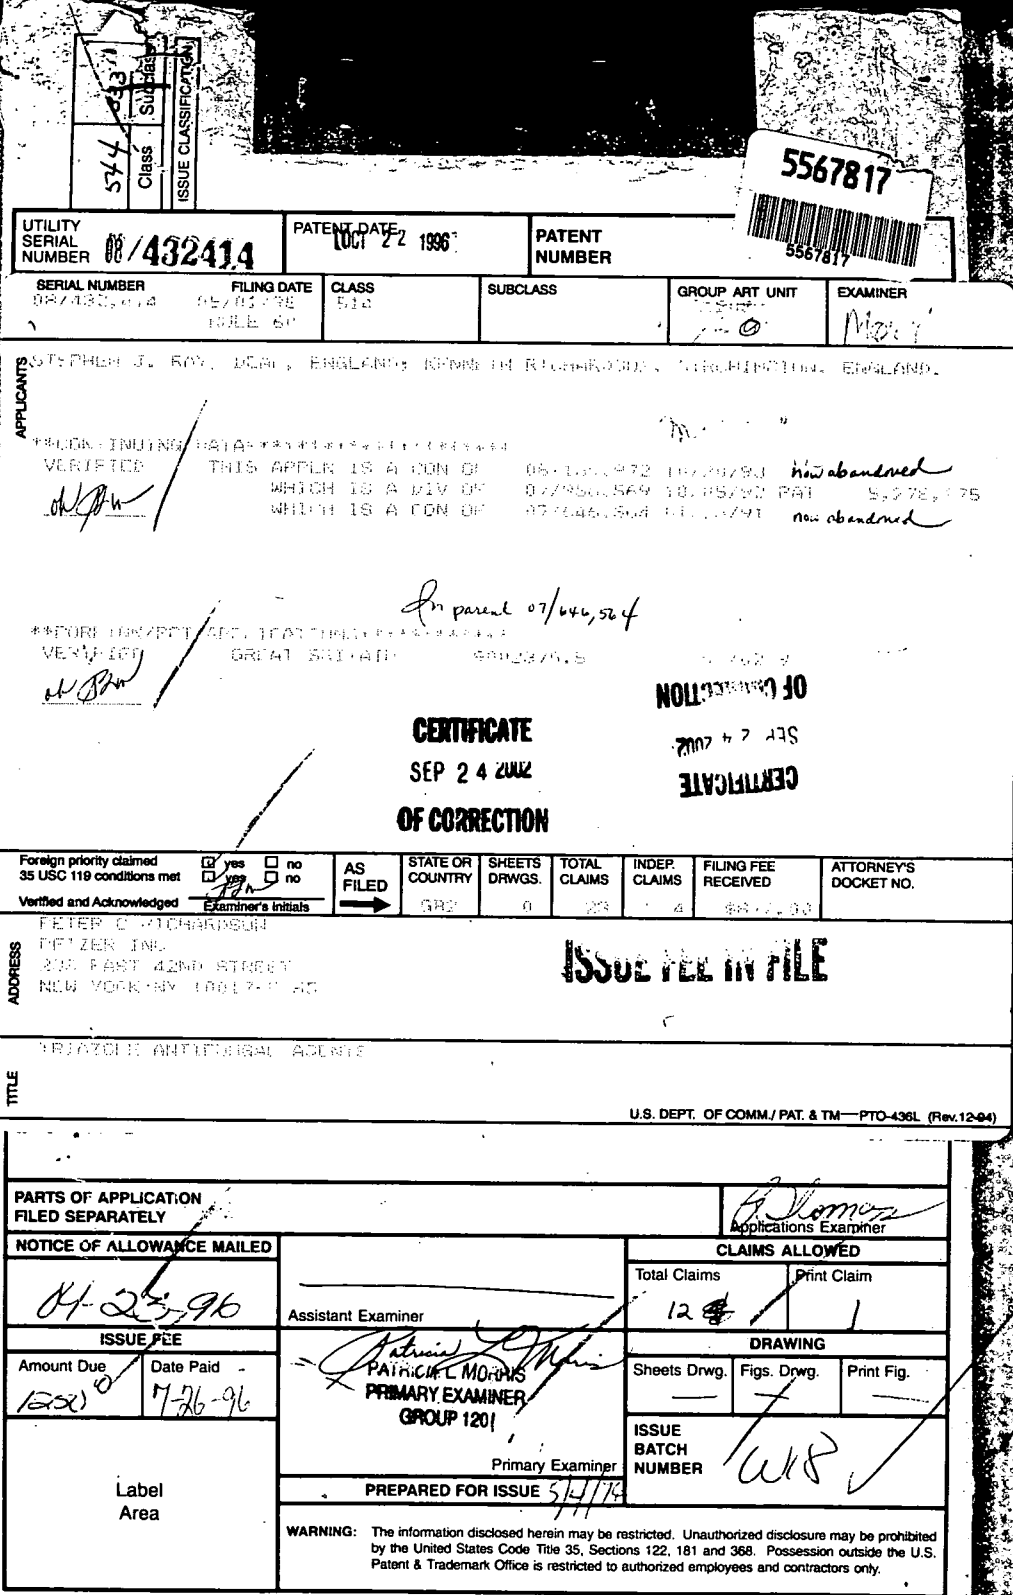 544
Class
Subclass
ISSUE CLASSIFICATION
5567817
5567817
UTILITY
SERIAL
NUMBER 08/432414
PATENT DATE
OCT 22 1996
PATENT
NUMBER
SERIAL NUMBER
FILING DATE
CLASS
SUBCLASS
GROUP ART UNIT
EXAMINER
514
RULE 60
APPLICANTS
STEPHEN J. RAY, DEAL, ENGLAND; KENNETH RICHARDSON, ENGLAND.
**CONTINUING DATA**
VERIFIED THIS APPLN IS A CON OF now abandoned
WHICH IS A DIV OF 07/956,569 PAT
WHICH IS A CON OF now abandoned
In parent 07/646,564
**FOREIGN/PCT APPLICATIONS**
VERIFIED GREAT BRITAIN
CERTIFICATE
SEP 24 2002
OF CORRECTION
CERTIFICATE
SEP 24 2002
OF CORRECTION
Foreign priority claimed yes no
35 USC 119 conditions met yes no
Verified and Acknowledged Examiner's Initials
AS
FILED
STATE OR
COUNTRY
SHEETS
DRWGS.
TOTAL
CLAIMS
INDEP.
CLAIMS
FILING FEE
RECEIVED
ATTORNEY'S
DOCKET NO.
0
4
ADDRESS
PETER C RICHARDSON
PFIZER INC
235 EAST 42ND STREET
NEW YORK NY
ISSUE FEE IN FILE
TITLE
TRIAZOLE ANTIFUNGAL AGENTS
U.S. DEPT. OF COMM./ PAT. & TM—PTO-436L (Rev.12-94)
PARTS OF APPLICATION
FILED SEPARATELY
Applications Examiner
NOTICE OF ALLOWANCE MAILED
04-23-96
Assistant Examiner
CLAIMS ALLOWED
Total Claims
12
Print Claim
1
ISSUE FEE
Amount Due
1250
Date Paid
7-26-96
PATRICIA L MORRIS
PRIMARY EXAMINER
GROUP 1201
Primary Examiner
DRAWING
Sheets Drwg.
Figs. Drwg.
Print Fig.
ISSUE
BATCH
NUMBER
W18
Label
Area
PREPARED FOR ISSUE
WARNING: The information disclosed herein may be restricted. Unauthorized disclosure may be prohibited
by the United States Code Title 35, Sections 122, 181 and 368. Possession outside the U.S.
Patent & Trademark Office is restricted to authorized employees and contractors only.